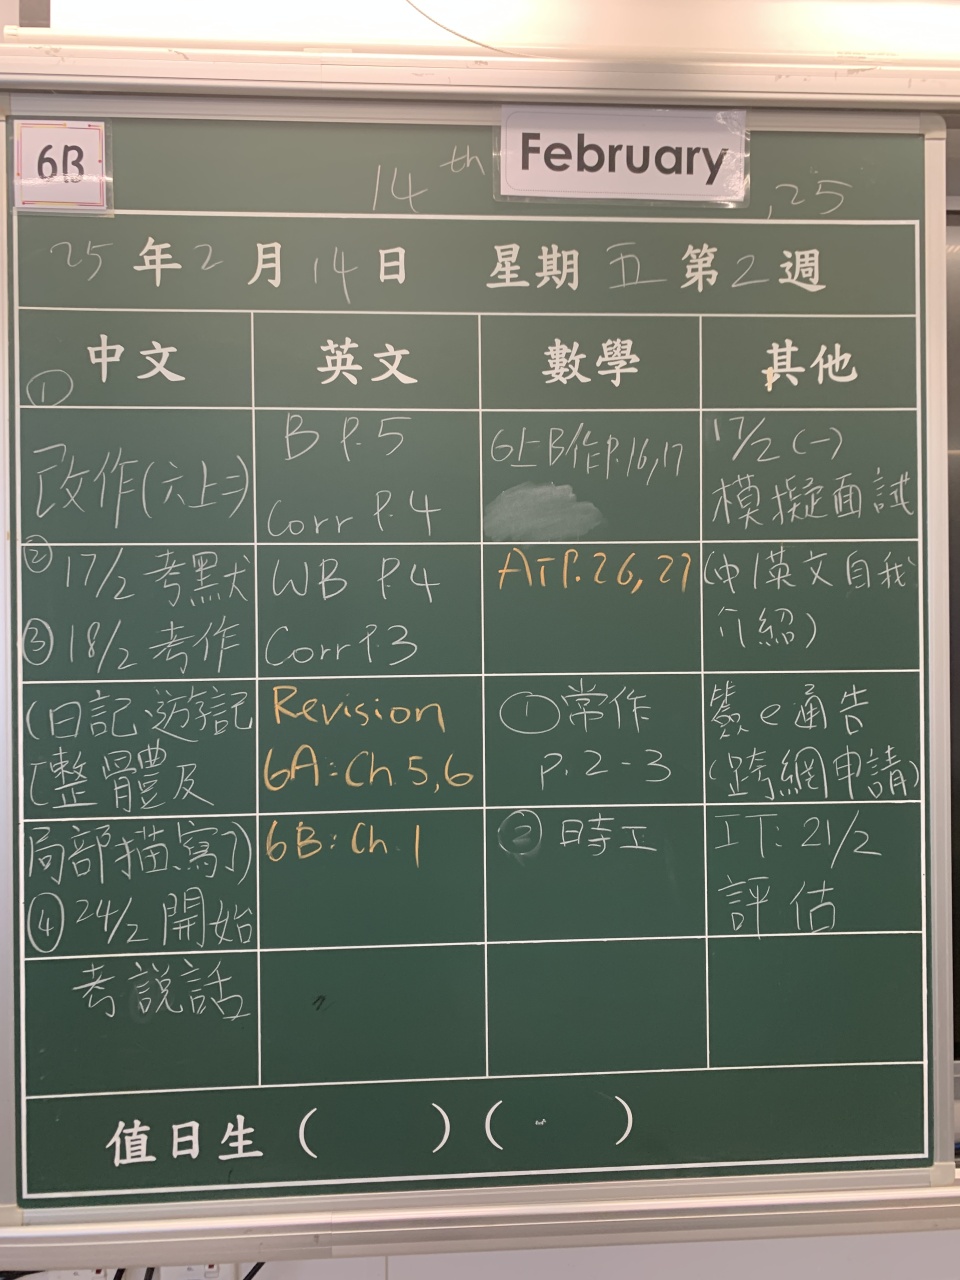 6B
February
14th , 25
25年2月14日 星期五第2週
中文
①
改作(六上二)
② 17/2 考默
③ 18/2 考作
(日記、遊記
[整體及
局部描寫])
④ 24/2 開始
考說話
英文
B P.5
Corr P.4
WB P.4
Corr P.3
Revision
6A: Ch.5,6
6B: Ch.1
數學
6上B作P.16,17
AT P.26,27
① 常作
p.2-3
② 時工
其他
17/2 (一)
模擬面試
(中/英文自我
介紹)
簽e通告
(跨網申請)
IT: 21/2
評估
值日生 ( ) ( )